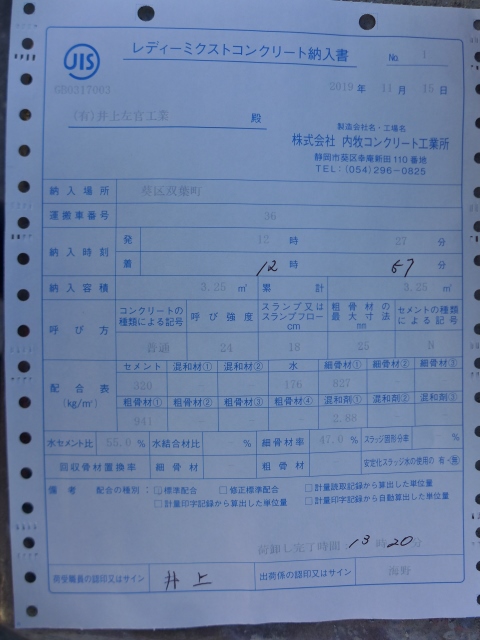 JIS
レディーミクストコンクリート納入書 No. 1
GB0317003
2019 年 11 月 15 日
(有)井上左官工業 殿
製造会社名・工場名
株式会社 内牧コンクリート工業所
静岡市葵区幸庵新田110番地
TEL:(054)296-0825
納入場所 葵区双葉町
運搬車番号 36
納入時刻 発 12 時 27 分
着 12 時 57 分
納入容積 3.25 ㎥ 累計 3.25 ㎥
呼び方 コンクリートの種類による記号 呼び強度 スランプ又はスランプフロー cm 粗骨材の最大寸法 mm セメントの種類による記号
普通 24 18 25 N
配合表 (kg/㎥) セメント 混和材① 混和材② 水 細骨材① 細骨材② 細骨材③
320 - - 176 827 - -
粗骨材① 粗骨材② 粗骨材③ 粗骨材④ 混和剤① 混和剤② 混和剤③
941 - - - 2.88 - -
水セメント比 55.0 % 水結合材比 - % 細骨材率 47.0 % スラッジ固形分率 - %
回収骨材置換率 細骨材 粗骨材 安定化スラッジ水の使用の有・無
備考 配合の種別:□標準配合 □修正標準配合 □計量読取記録から算出した単位量
□計量印字記録から算出した単位量 □計量印字記録から自動算出した単位量
荷卸し完了時間 13 時 20 分
荷受職員の認印又はサイン 井上 出荷係の認印又はサイン 海野